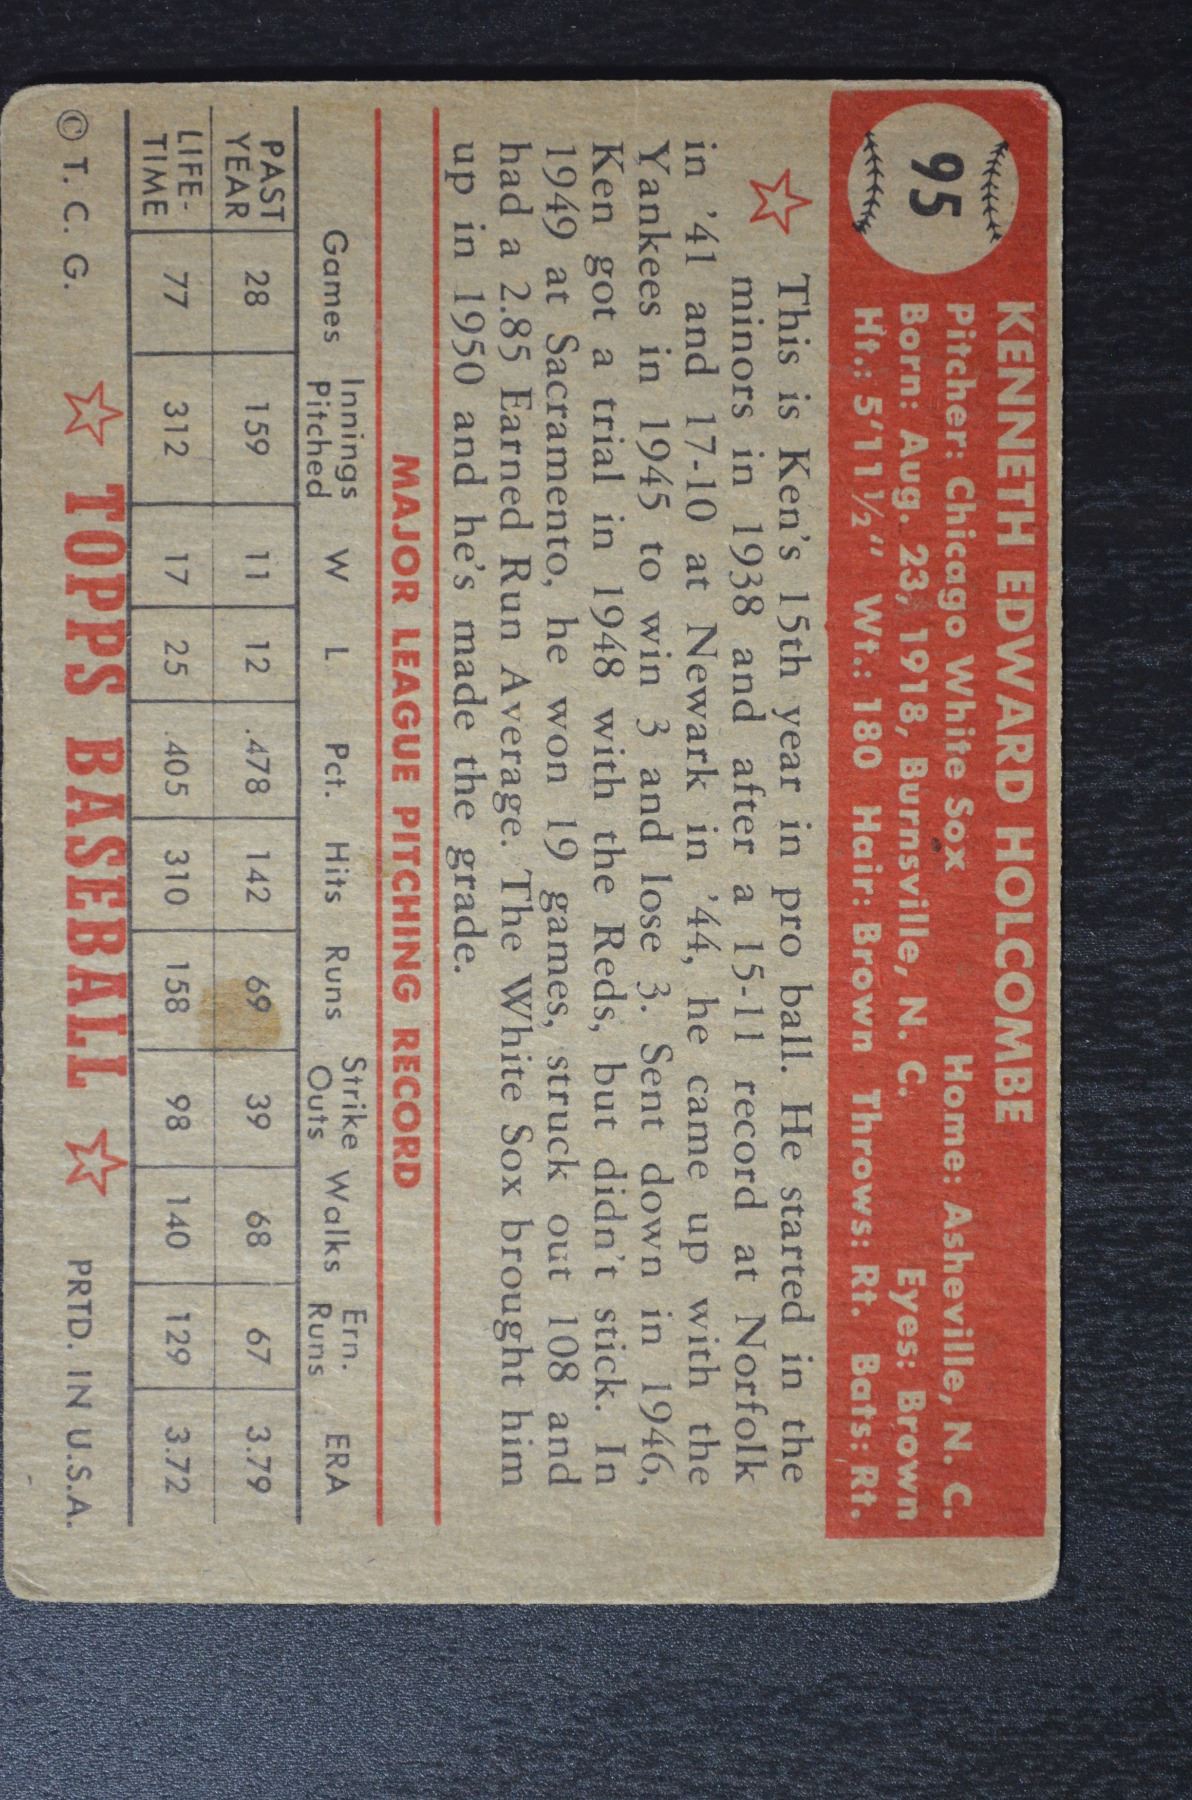 95
KENNETH EDWARD HOLCOMBE
Pitcher: Chicago White Sox Home: Asheville, N. C.
Born: Aug. 23, 1918, Burnsville, N. C. Eyes: Brown
Ht.: 5'11½" Wt.: 180 Hair: Brown Throws: Rt. Bats: Rt.
This is Ken's 15th year in pro ball. He started in the
minors in 1938 and after a 15-11 record at Norfolk
in '41 and 17-10 at Newark in '44, he came up with the
Yankees in 1945 to win 3 and lose 3. Sent down in 1946,
Ken got a trial in 1948 with the Reds, but didn't stick. In
1949 at Sacramento, he won 19 games, struck out 108 and
had a 2.85 Earned Run Average. The White Sox brought him
up in 1950 and he's made the grade.
MAJOR LEAGUE PITCHING RECORD
Games Innings Pitched W L Pct. Hits Runs Strike Outs Walks Ern. Runs ERA
PAST YEAR 28 159 11 12 .478 142 69 39 68 67 3.79
LIFE-TIME 77 312 17 25 .405 310 158 98 140 129 3.72
© T. C. G. TOPPS BASEBALL PRTD. IN U.S.A.